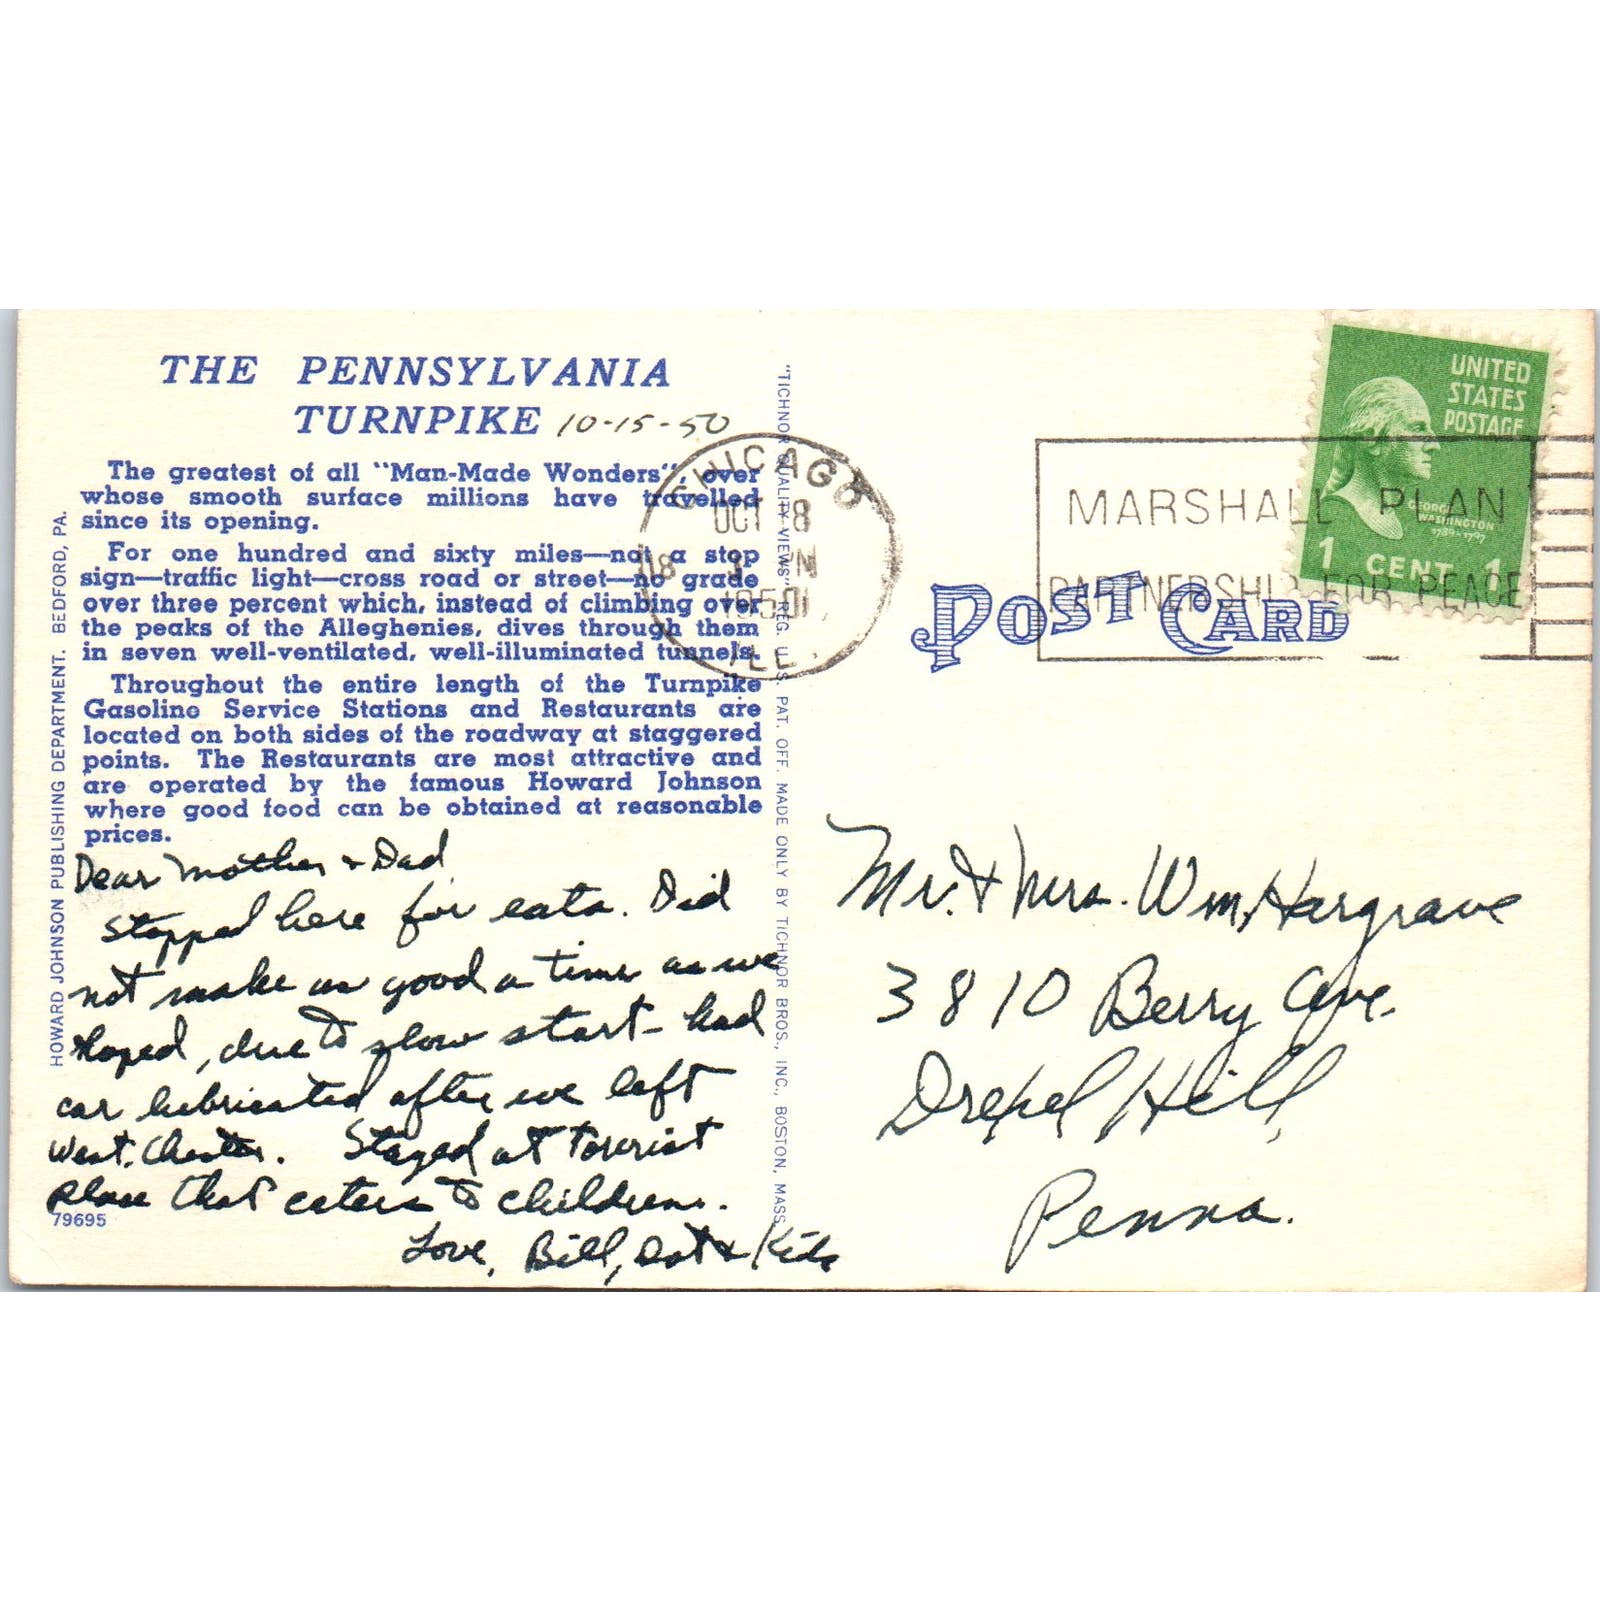 THE PENNSYLVANIA
TURNPIKE 10-15-50
The greatest of all "Man-Made Wonders", over
whose smooth surface millions have travelled
since its opening.
For one hundred and sixty miles—not a stop
sign—traffic light—cross road or street—no grade
over three percent which, instead of climbing over
the peaks of the Alleghenies, dives through them
in seven well-ventilated, well-illuminated tunnels.
Throughout the entire length of the Turnpike
Gasoline Service Stations and Restaurants are
located on both sides of the roadway at staggered
points. The Restaurants are most attractive and
are operated by the famous Howard Johnson
where good food can be obtained at reasonable
prices.
Dear Mother + Dad
Stopped here for eats. Did
not make as good a time as we
hoped, due to slow start - had
car lubricated after we left
West. Chester. Stayed at Tourist
place that caters to children.
Love, Bill, Dot + Kids
79695
HOWARD JOHNSON PUBLISHING DEPARTMENT. BEDFORD, PA.
"TICHNOR QUALITY VIEWS" REG. U.S. PAT. OFF. MADE ONLY BY TICHNOR BROS., INC., BOSTON, MASS.
CHICAGO
OCT 18
18
1950
ILL.
MARSHALL PLAN
PARTNERSHIP FOR PEACE
UNITED
STATES
POSTAGE
GEORGE
WASHINGTON
1789-1797
1 CENT 1
POST CARD
Mr. + Mrs. Wm. Hargrave
3810 Berry Ave.
Drexel Hill,
Penna.